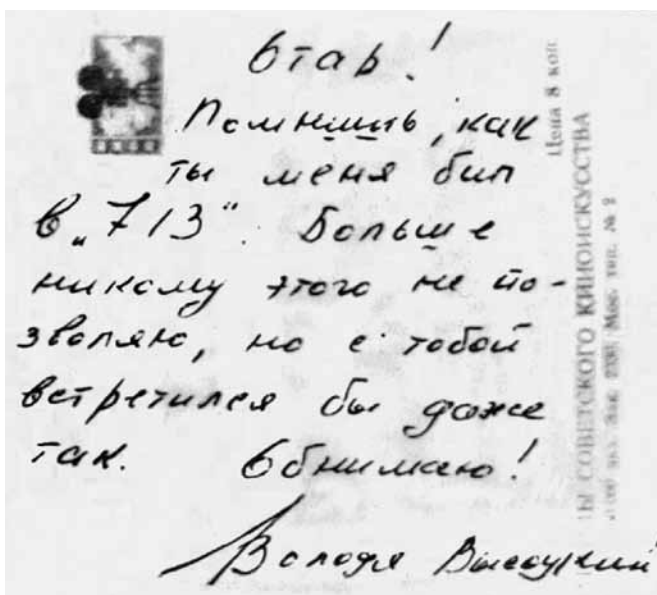 Отар!
Помнишь, как
ты меня бил
в „713“. Больше
никому этого не по-
зволяю, но с тобой
встретился бы даже
так. Обнимаю!
Володя Высоцкий
Цена 8 коп.
Ы СОВЕТСКОГО КИНОИСКУССТВА